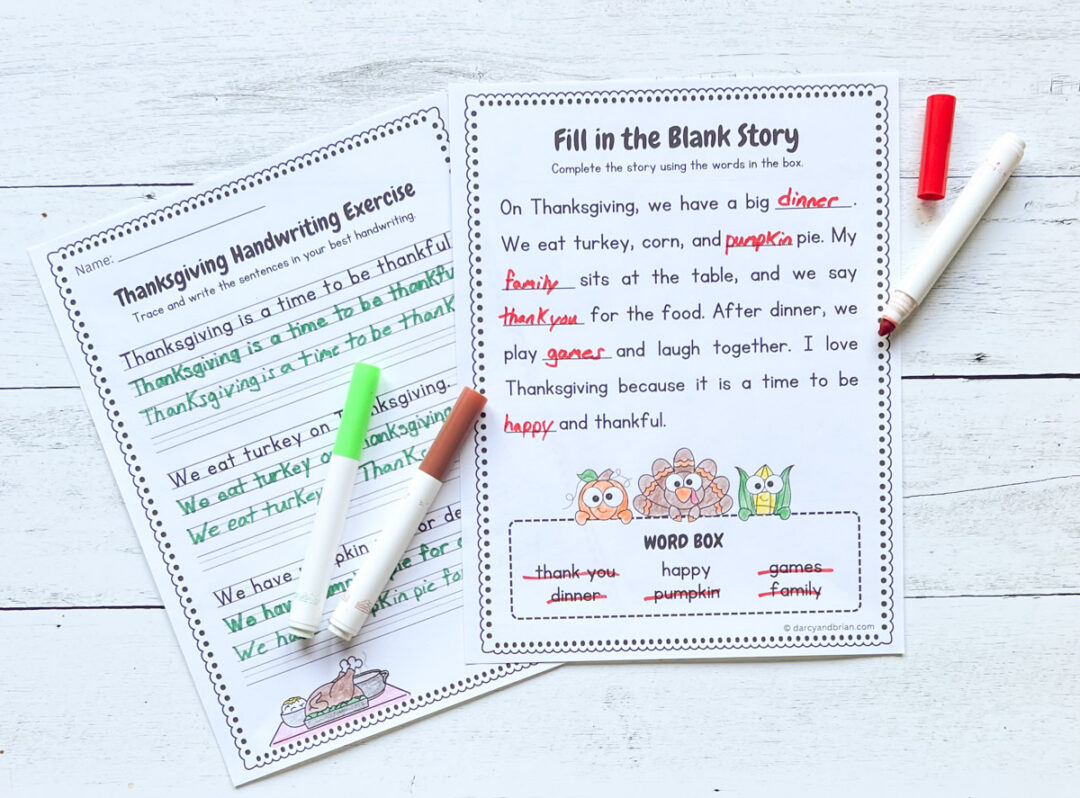 Name:
Thanksgiving Handwriting Exercise
Trace and write the sentences in your best handwriting.
Thanksgiving is a time to be thankful
Thanksgiving is a time to be thankfu
Thanksgiving is a time to be thank
We eat turkey on Thanksgiving.
We eat turkey on Thanksgiving
We eat turkey Thanks
We have pumpkin for de
We have pie for
We pie fo
Fill in the Blank Story
Complete the story using the words in the box.
On Thanksgiving, we have a big dinner.
We eat turkey, corn, and pumpkin pie. My
family sits at the table, and we say
thank you for the food. After dinner, we
play games and laugh together. I love
Thanksgiving because it is a time to be
happy and thankful.
WORD BOX
thank you happy games
dinner pumpkin family
© darcyandbrian.com